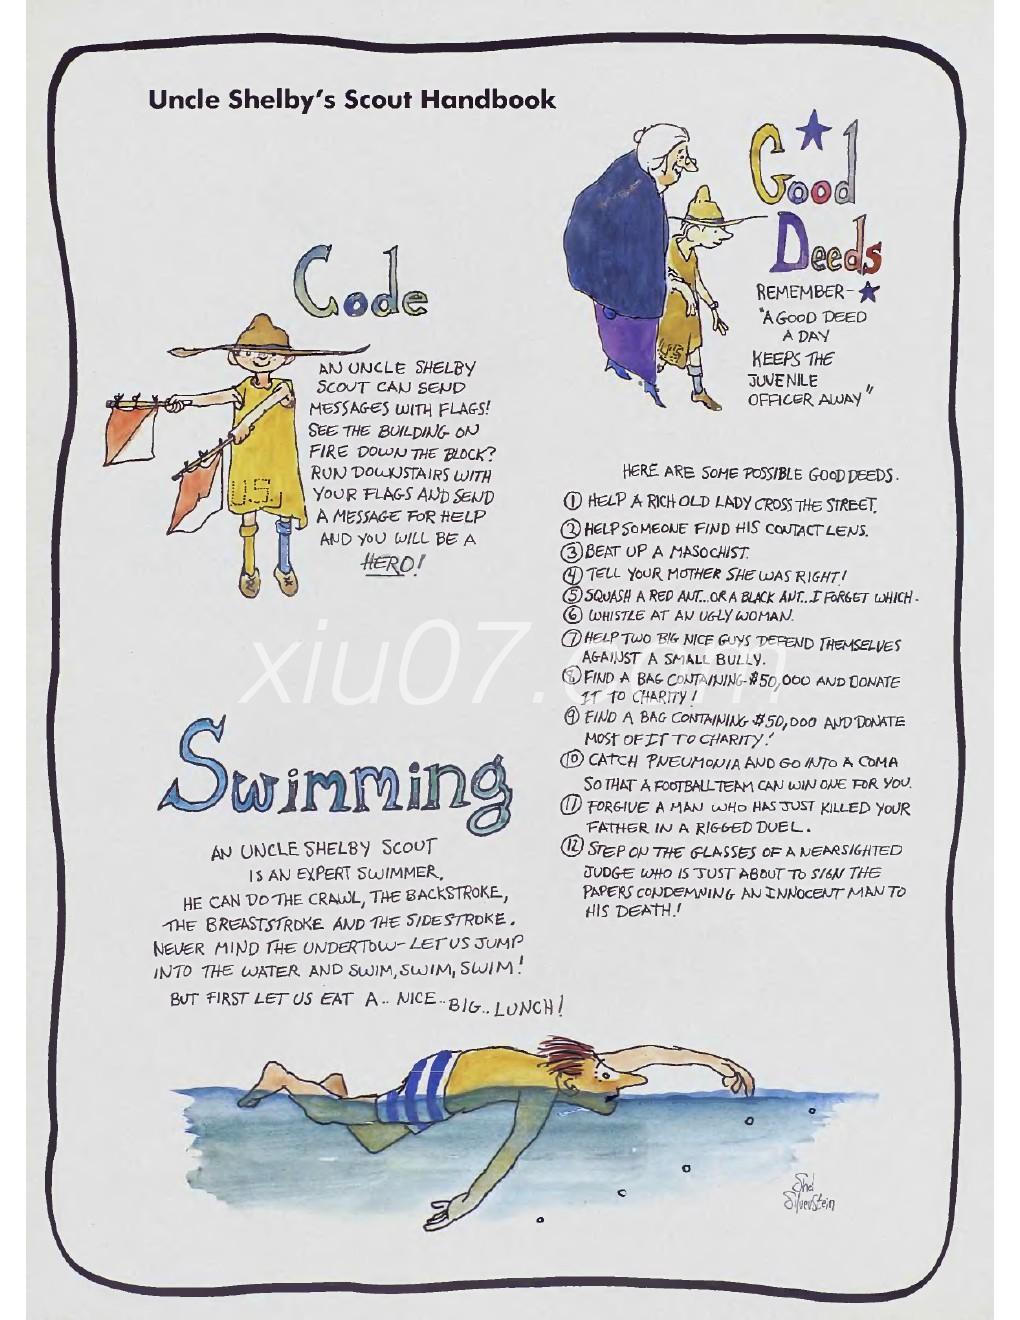 Uncle Shelby's Scout Handbook
Code
AN UNCLE SHELBY
SCOUT CAN SEND
MESSAGES WITH FLAGS!
SEE THE BUILDING ON
FIRE DOWN THE BLOCK?
RUN DOWNSTAIRS WITH
YOUR FLAGS AND SEND
A MESSAGE FOR HELP
AND YOU WILL BE A
HERO!
U.S.
Swimming
AN UNCLE SHELBY SCOUT
IS AN EXPERT SWIMMER.
HE CAN DO THE CRAWL, THE BACKSTROKE,
THE BREASTSTROKE AND THE SIDESTROKE.
NEVER MIND THE UNDERTOW- LET US JUMP
INTO THE WATER AND SWIM, SWIM, SWIM!
BUT FIRST LET US EAT A.. NICE.. BIG.. LUNCH!
Good
Deeds
REMEMBER-
"A GOOD DEED
A DAY
KEEPS THE
JUVENILE
OFFICER AWAY"
U.S.
HERE ARE SOME POSSIBLE GOOD DEEDS.
① HELP A RICH OLD LADY CROSS THE STREET.
② HELP SOMEONE FIND HIS CONTACT LENS.
③ BEAT UP A MASOCHIST.
④ TELL YOUR MOTHER SHE WAS RIGHT!
⑤ SQUASH A RED ANT...OR A BLACK ANT...I FORGET WHICH.
⑥ WHISTLE AT AN UGLY WOMAN.
⑦ HELP TWO BIG NICE GUYS DEFEND THEMSELVES
AGAINST A SMALL BULLY.
⑧ FIND A BAG CONTAINING $50,000 AND DONATE
IT TO CHARITY!
⑨ FIND A BAG CONTAINING $50,000 AND DONATE
MOST OF IT TO CHARITY!
⑩ CATCH PNEUMONIA AND GO INTO A COMA
SO THAT A FOOTBALL TEAM CAN WIN ONE FOR YOU.
⑪ FORGIVE A MAN WHO HAS JUST KILLED YOUR
FATHER IN A RIGGED DUEL.
⑫ STEP ON THE GLASSES OF A NEARSIGHTED
JUDGE WHO IS JUST ABOUT TO SIGN THE
PAPERS CONDEMNING AN INNOCENT MAN TO
HIS DEATH!
Shel
Silverstein
xiu07.com